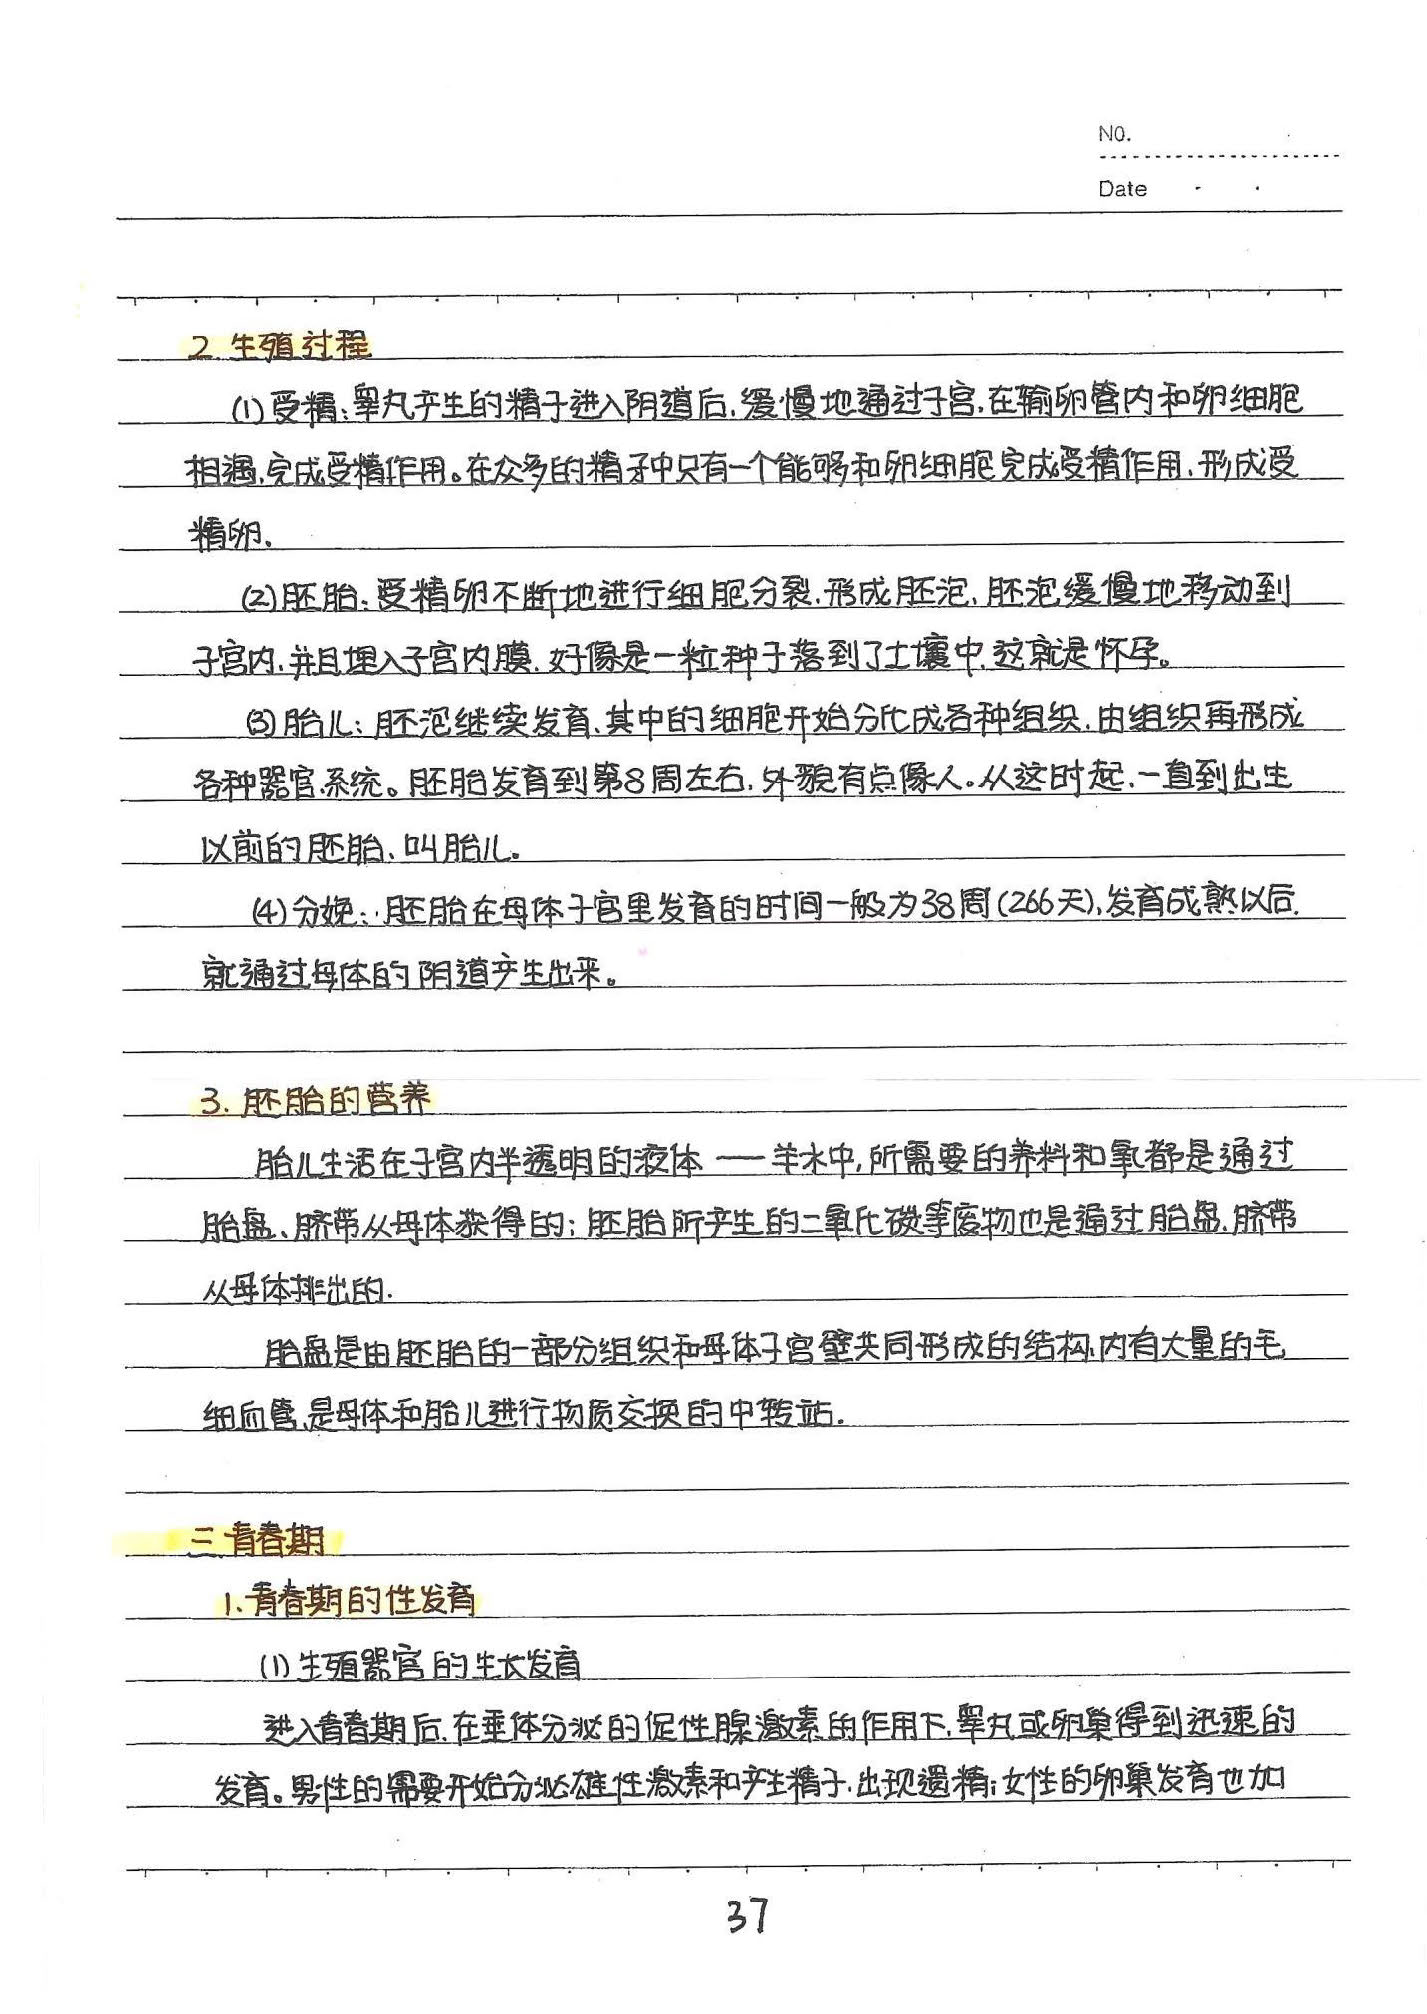 NO.
Date
2. 生殖过程
(1)受精:睾丸产生的精子进入阴道后,缓慢地通过子宫,在输卵管内和卵细胞
相遇,完成受精作用。在众多的精子中只有一个能够和卵细胞完成受精作用,形成受
精卵.
(2)胚胎:受精卵不断地进行细胞分裂,形成胚泡,胚泡缓慢地移动到
子宫内,并且埋入子宫内膜,好像是一粒种子落到了土壤中,这就是怀孕。
(3)胎儿:胚泡继续发育,其中的细胞开始分化成各种组织,由组织再形成
各种器官、系统。胚胎发育到第8周左右,外貌有点像人。从这时起,一直到出生
以前的胚胎、叫胎儿。
(4)分娩:胚胎在母体子宫里发育的时间一般为38周(266天),发育成熟以后,
就通过母体的阴道产生出来。
3. 胚胎的营养
胎儿生活在子宫内半透明的液体——羊水中,所需要的养料和氧都是通过
胎盘、脐带从母体获得的;胚胎所产生的二氧化碳等废物也是通过胎盘、脐带
从母体排出的.
胎盘是由胚胎的一部分组织和母体子宫壁共同形成的结构,内有大量的毛
细血管,是母体和胎儿进行物质交换的中转站.
三.青春期
1.青春期的性发育
(1)生殖器官的生长发育
进入青春期后,在垂体分泌的促性腺激素的作用下,睾丸或卵巢得到迅速的
发育。男性的需要开始分泌雄性激素和产生精子,出现遗精;女性的卵巢发育也加
37